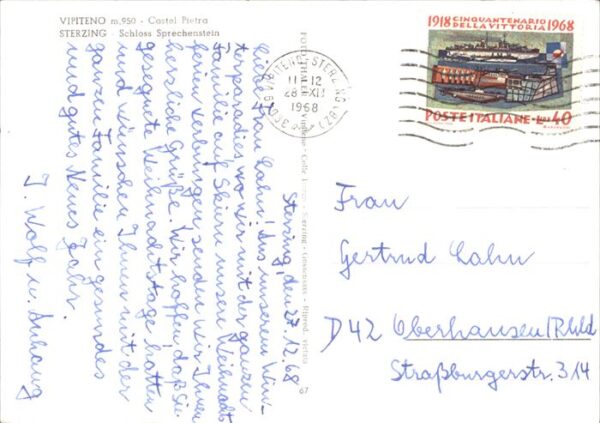 VIPITENO m. 950 - Castel Pietra
STERZING - Schloss Sprechenstein
Sterzing, den 27.12.68
Liebe Frau Cahn! Aus unserem Win-
terparadies, wo wir mit der ganzen
Familie auf Skiern unsere Weihnachts
ferien verbringen senden wir Ihnen
herzliche Grüße. Wir hoffen, daß Sie
gesegnete Weihnachtstage hatten
und wünschen Ihnen mit der
ganzen Familie ein gesundes
und gutes Neues Jahr.
J. Wolf u. Anhang
FOTO THALER
67
VIPITENO - STERZING (BZ)
11-12
28 XII
1968
1918 CINQUANTENARIO 1968
DELLA VITTORIA
POSTE ITALIANE L. 40
Frau
Gertrud Cahn
D 42 Oberhausen/Rhld
Straßburgerstr. 314